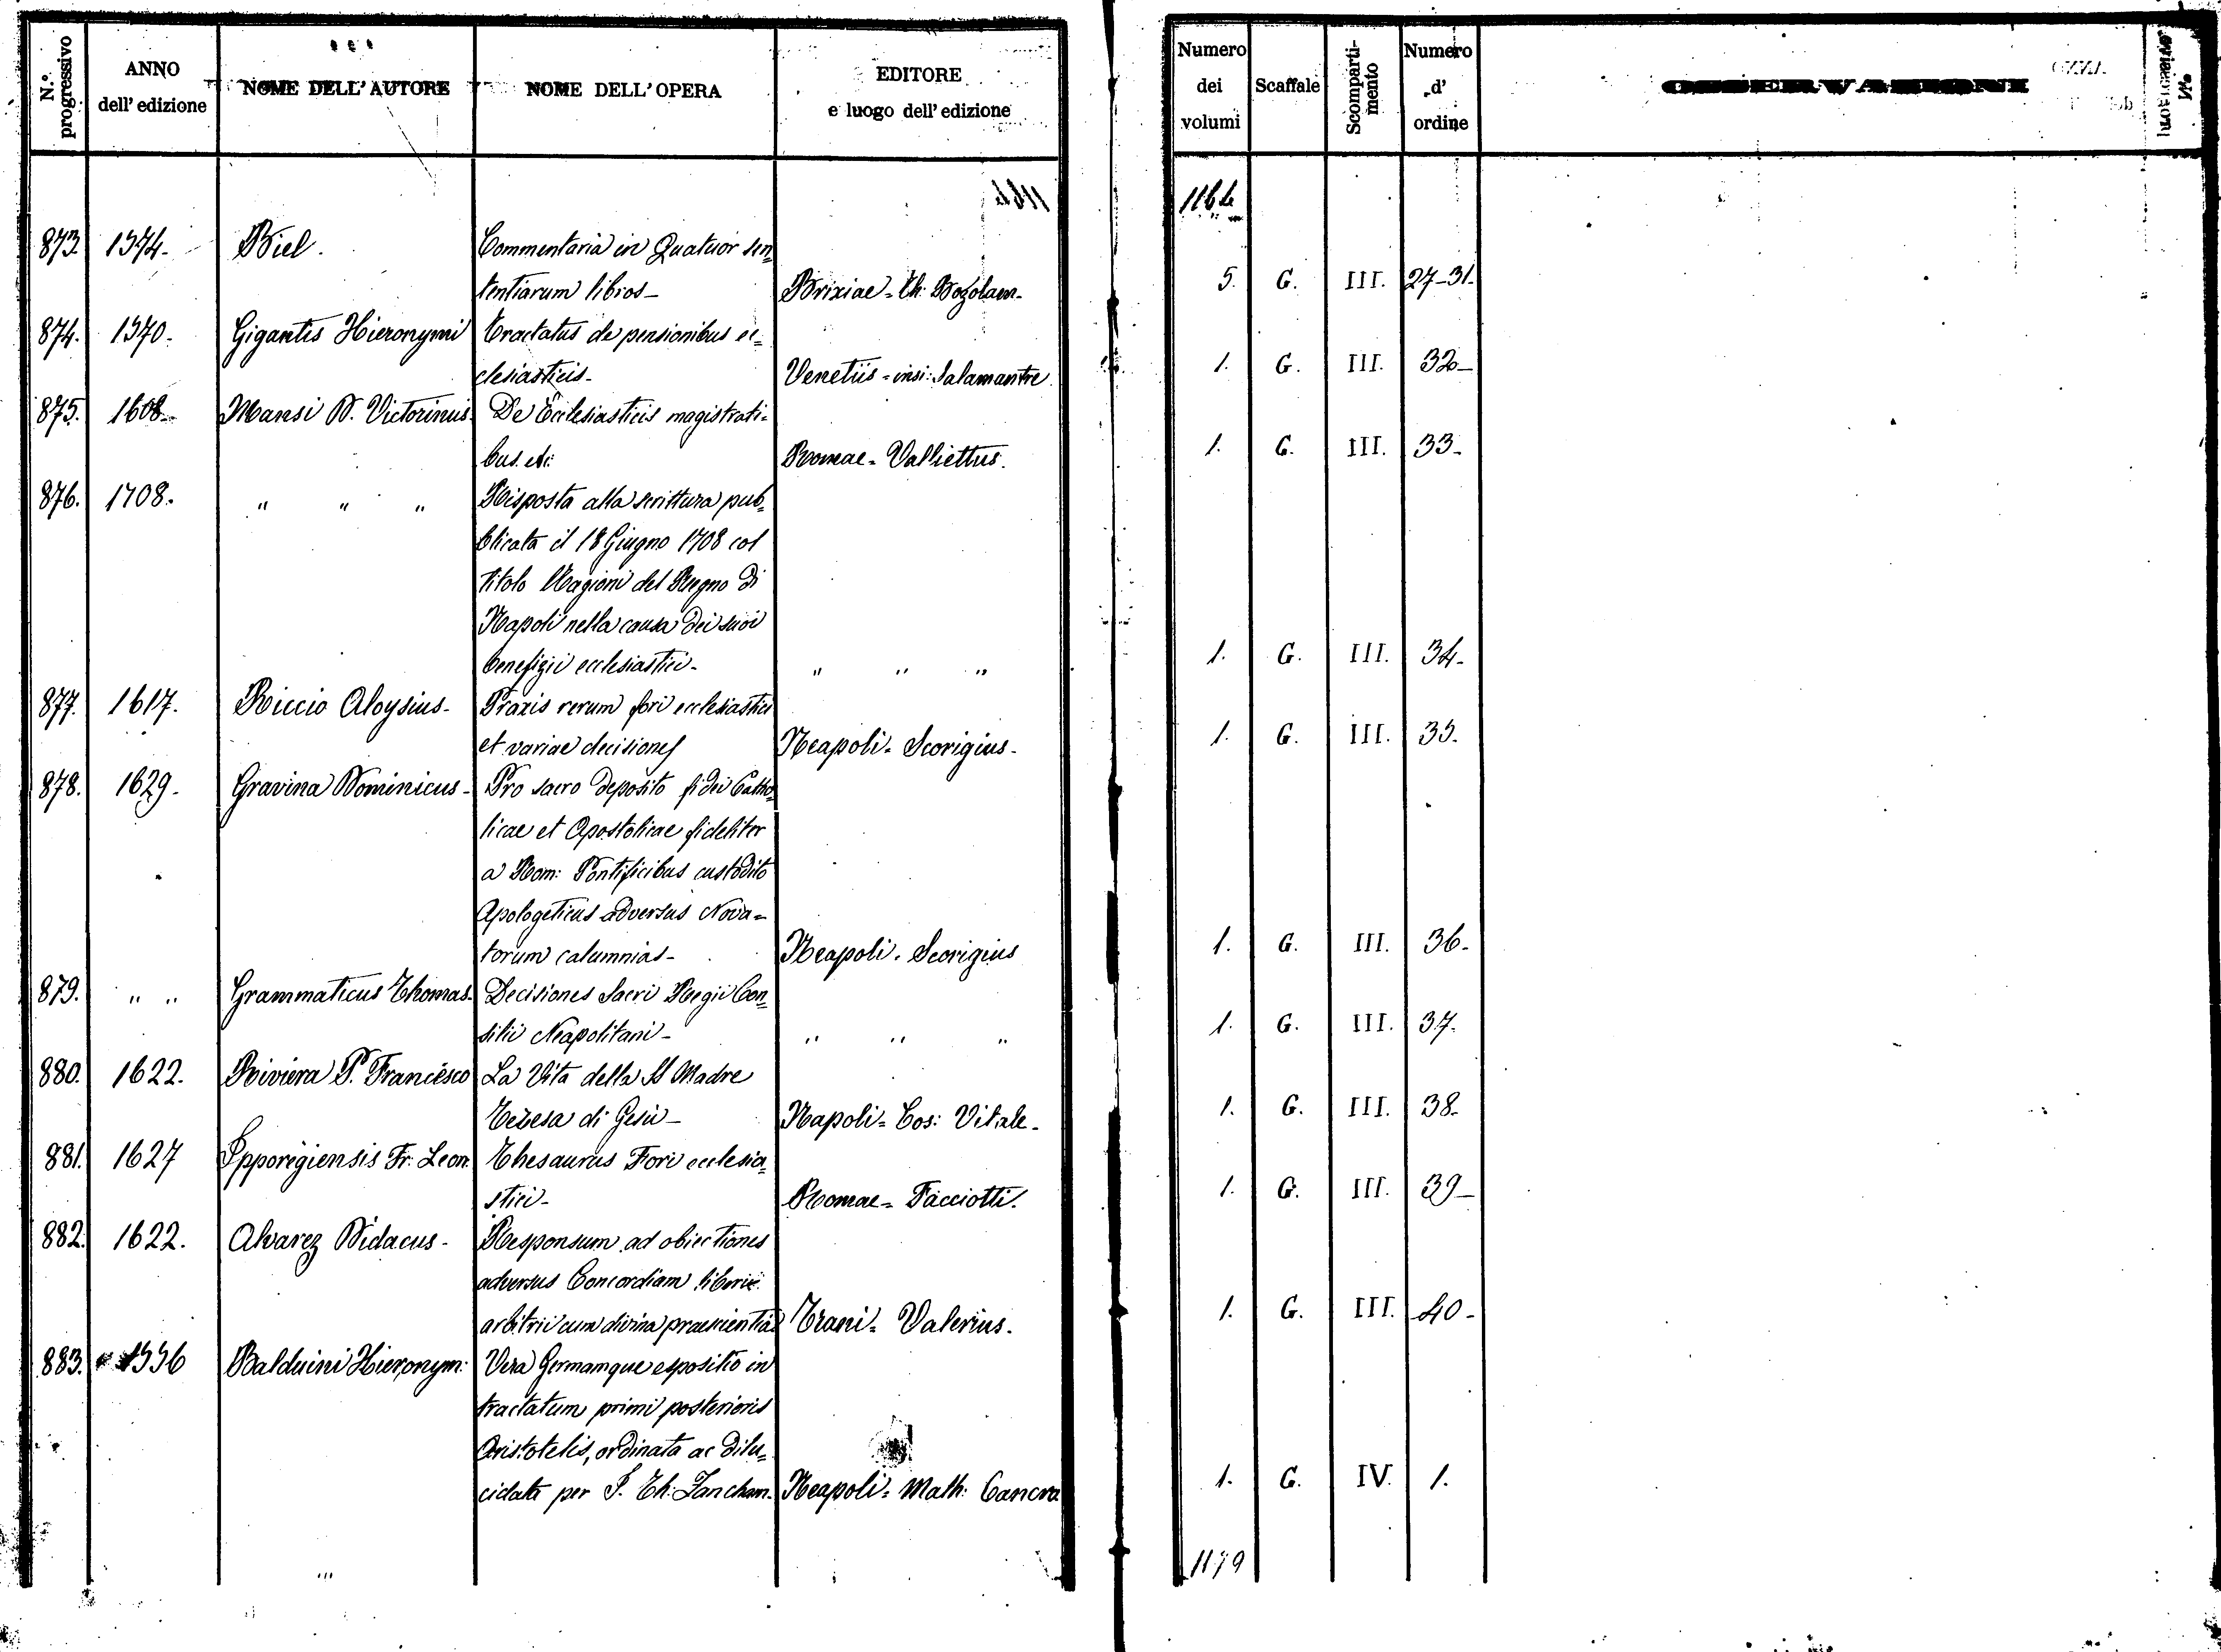 N.º progressivo | ANNO dell' edizione | NOME DELL' AUTORE | NOME DELL' OPERA | EDITORE e luogo dell' edizione | Numero dei volumi | Scaffale | Scompartimento | Numero d' ordine | OSSERVAZIONI
1164
873. 1574. Biel. Commentaria in Quatuor sen=
tentiarum libros - Brixiae - Th: Bozolam. 5. G. III. 27-31.
874. 1570. Gigantis Hieronymi Tractatus de pensionibus ec=
clesiasticis - Venetiis = insi: Salamantre. 1. G. III. 32 -
875. 1608. Mansi D. Victorinus De Ecclesiasticis magistrati=
bus. etc: Romae = Valliettus. 1. G. III. 33 -
876. 1708. " " " Risposta alla scrittura pub=
blicata il 18 Giugno 1708 col
titolo Ragioni del Regno di
Napoli nella causa dei suoi
benefizii ecclesiastici - " " " 1. G. III. 34 -
877. 1617. Riccio Aloysius - Praxis rerum fori ecclesiastici
et variae decisiones Neapoli - Scorigius - 1. G. III. 35.
878. 1629. Gravina Dominicus - Pro sacro deposito fidei Catho=
licae et Apostolicae fideliter
a Rom: Pontificibus custodito
Apologeticus adversus Nova=
torum calumnias - Neapoli. Scorigius 1. G. III. 36 -
879. " " Grammaticus Thomas. Decisiones Sacri Regii Con=
silii Neapolitani - " " " 1. G. III. 37.
880. 1622. Riviera P. Francesco La Vita della S Madre
Teresa di Gesù - Napoli = Cos: Vitale - 1. G. III. 38.
881. 1627 Ipporegiensis Fr: Leon. Thesaurus Fori ecclesia=
stici - Romae = Facciotti. 1. G. III. 39 -
882. 1622. Alvarez Didacus - Responsum ad obiectiones
adversus Concordiam liberi
arbitrii cum divina praescientia Trani = Valerius. 1. G. III. 40 -
883. 1556 Balduini Hieronym: Vera Germamque espositio in
tractatum primi posterioris
Aristotelis, ordinata ac dilu=
cidata per J. Th: Zancham. Neapoli = Math: Cancra 1. G. IV. 1.
1179